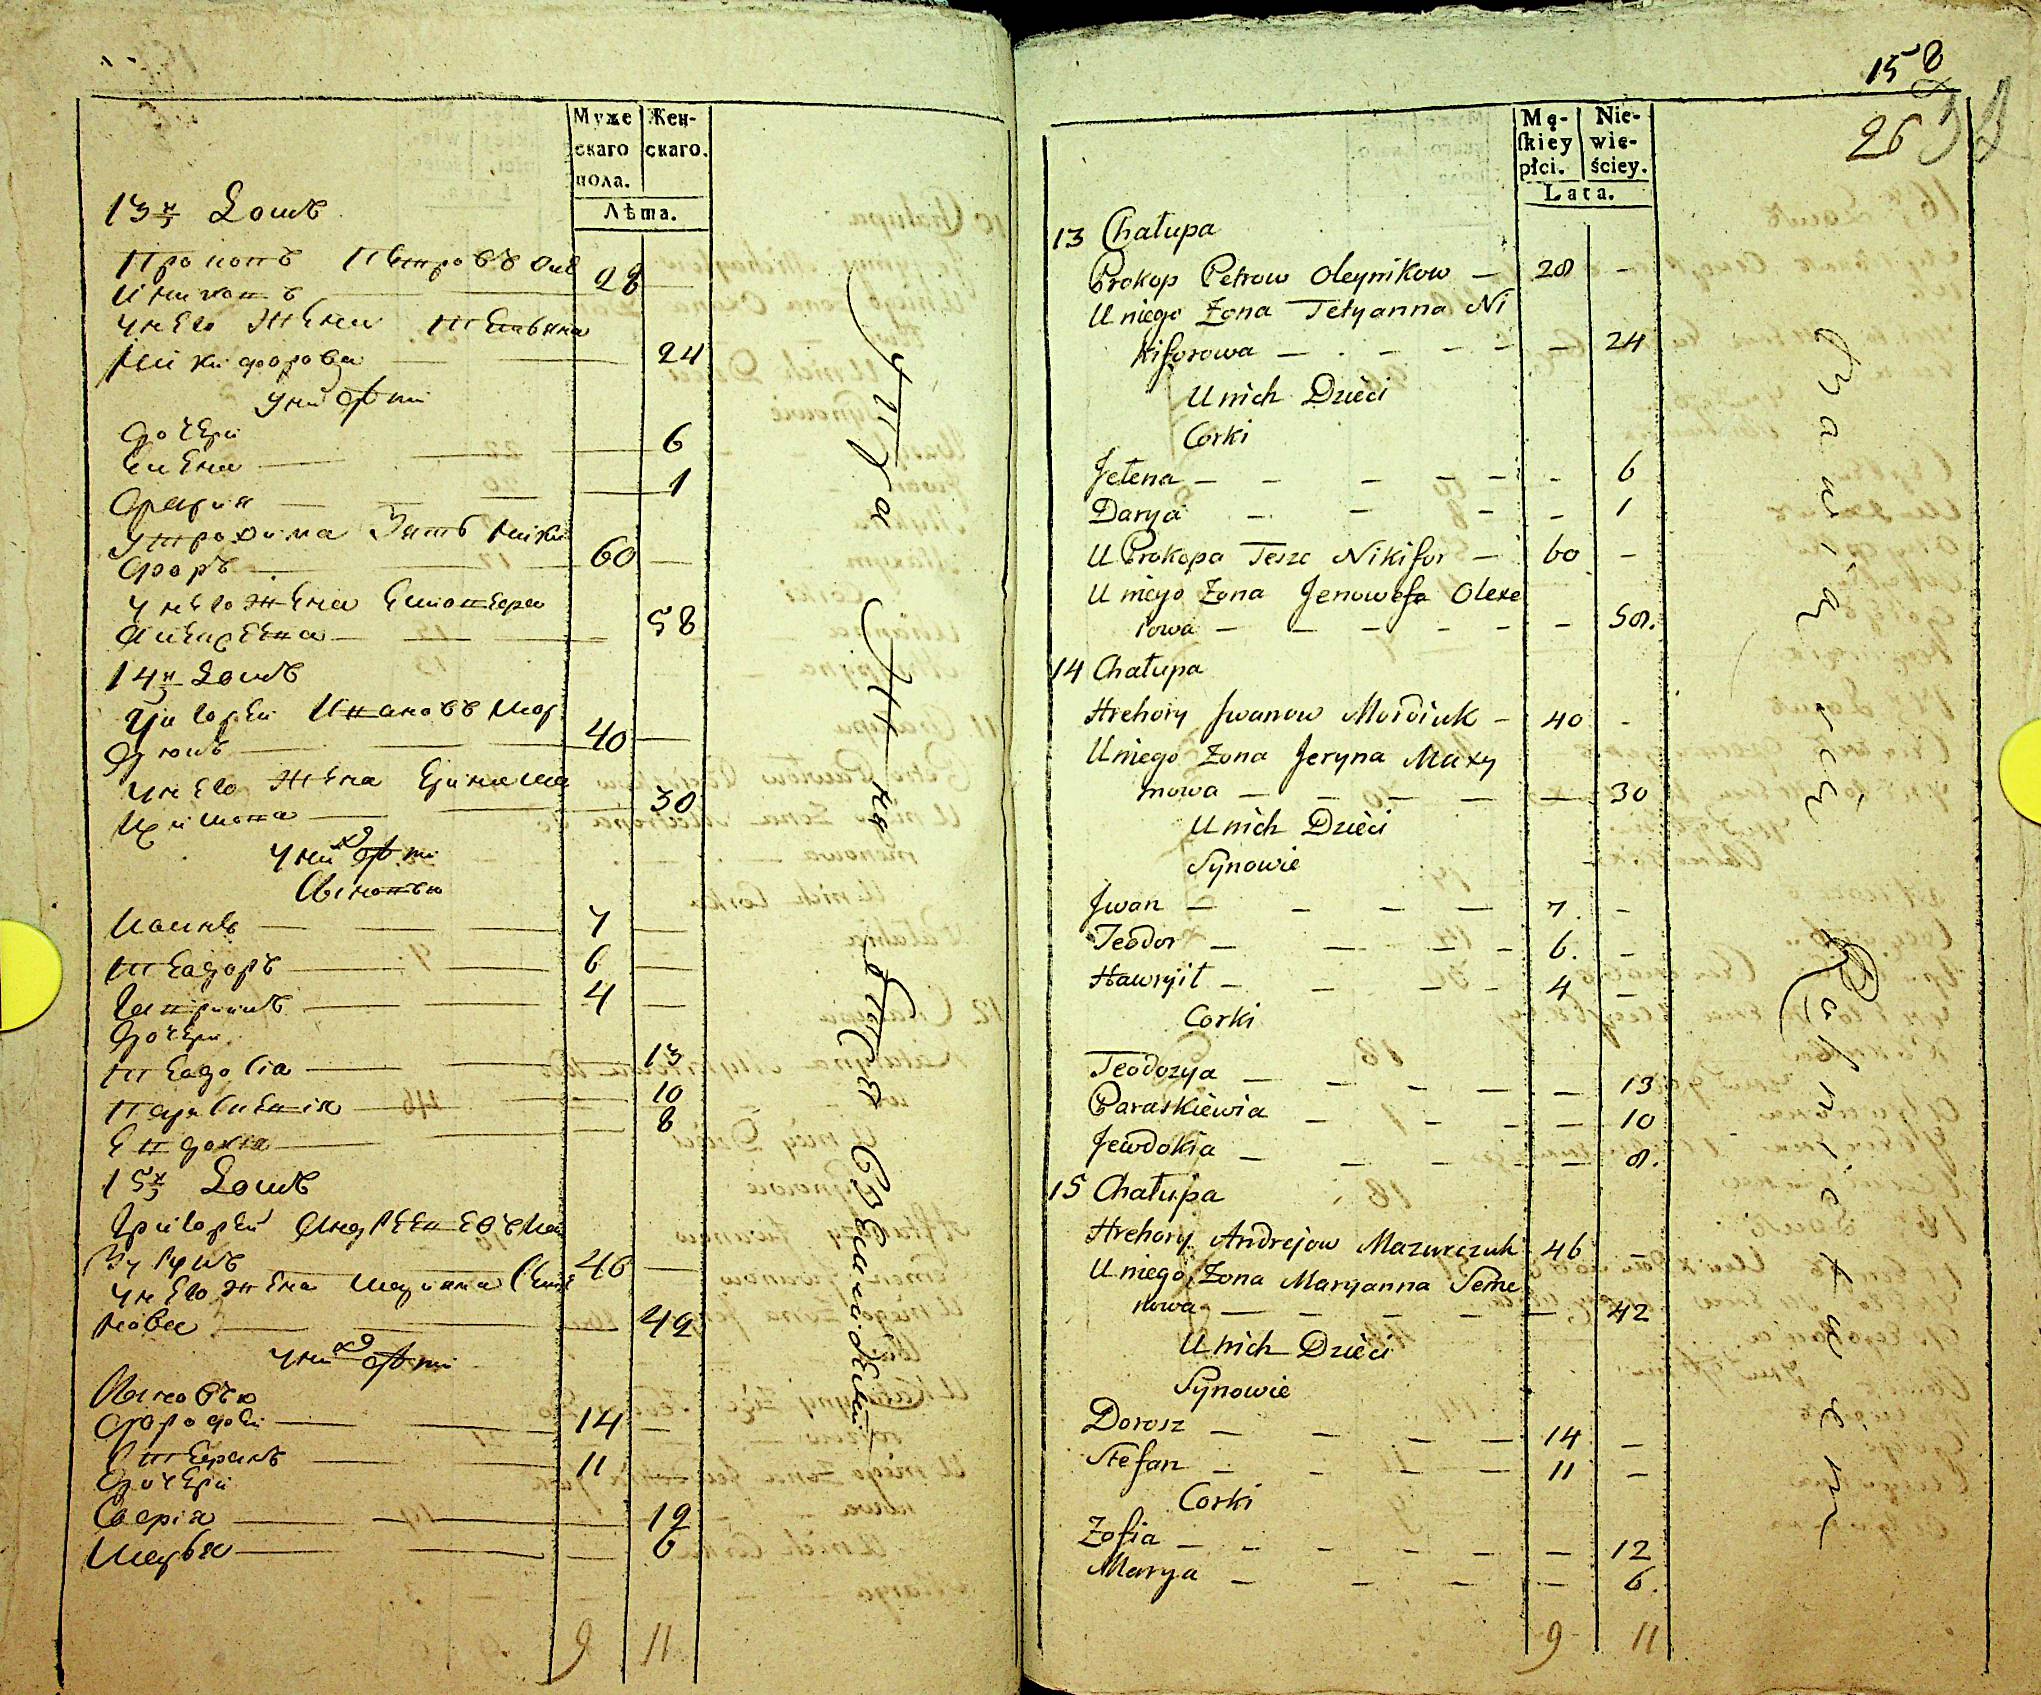 Муже
скаго
пола.
Жен-
скаго.
Лѣта.
13й Домъ
Прокопъ Петровъ Оле
йниковъ 28
У него жена Тетьяна
Никифорова 24
У них дѣти
Дочери
Елена 6
Дарія 1
Ники
форъ 60
У него жена
Алексеевна 58
14й Домъ
Григорей Ивановъ Мор
дюкъ 40
У него жена Ерина Ма
ксимова 30
У них дѣти
Сыновъя
Иванъ 7
Теодоръ 6
Гаврилъ 4
Дочери
Теодосiа 13
Параскевiя 10
Евдокiя 8
15й Домъ
Григорей Андреевъ Ма
зурчукъ 46
У него жена Марiяна Семе
нова 42
У них дѣти
Сыновъя
Дорофей 14
Стефанъ 11
Дочери
Софiя 12
Марья 6
9 11
158
26
Mę-
ſkiey
płci.
Nie-
wie-
ściey.
Lata.
13 Chałupa
Prokop Petrow Oleynikow — 28 -
U niego Zona Tetyanna Ni
kiforowa — 24
U nich Dzieci
Corki
Jełena — 6
Darya — 1
U Prokopa Teszc Nikifor — 60 -
U niego Zona Jenowefa Olexe
iowa — 58.
14 Chałupa
Hrehory Jwanow Mordiuk - 40 -
U niego Zona Jeryna Maxy
mowa — 30
U nich Dzieci
Synowie
Jwan — 7. -
Teodor — 6. -
Hawryił — 4 -
Corki
Teodozya — 13
Paraskiewia — 10
Jewdokia — 8.
15 Chałupa
Hrehory Andrejow Mazurczuk 46 -
U niego Zona Maryanna Seme
nowa — 42
U nich Dzieci
Synowie
Dorosz — 14 -
Stefan — 11 -
Corki
Zofia — 12
Marya — 6.
9 11